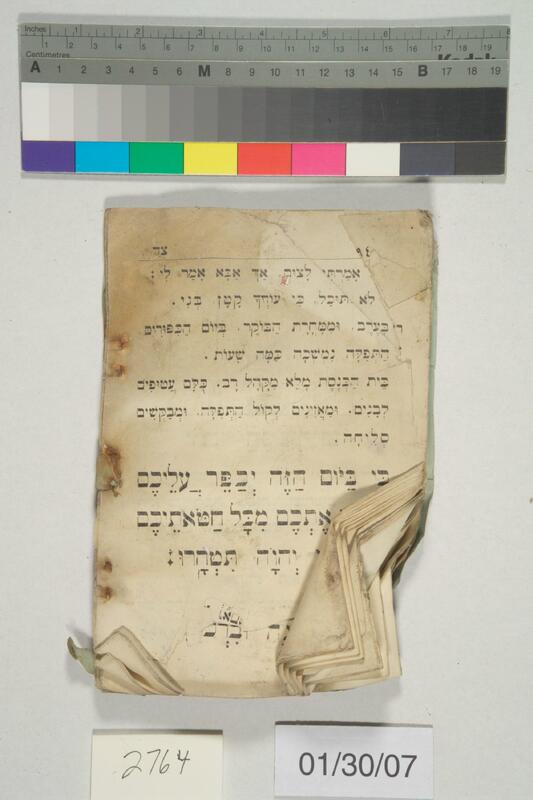 Inches 1 2 3 4 5 6 7 8
1 2 3 4 5 6 7 8 9 10 11 12 13 14 15 16 17 18 19
Centimetres
Kodak
A 1 2 3 4 5 6 M 8 9 10 11 12 13 14 15 B 17 18 19
צה
אָמַרְתִּי לָצוּם, אַךְ אַבָּא אָמַר לִי:
לֹא תוּכַל, כִּי עוֹדְךָ קָטָן בְּנִי.
בָּעֶרֶב, וּמִמָּחֳרָת הַבּוֹקֶר בְּיוֹם הַכִּפּוּרִים
הַתְּפִלָּה נִמְשְׁכָה כַּמָּה שָׁעוֹת.
בֵּית הַכְּנֶסֶת מָלֵא מִקָּהָל רָב. כֻּלָּם עֲטוּפִים
לְבָנִים, וּמַאֲזִינִים לְקוֹל הַתְּפִלָּה, וּמְבַקְשִׁים
סְלִיחָה.
כִּי בַיּוֹם הַזֶּה יְכַפֵּר עֲלֵיכֶם
אֶתְכֶם מִכָּל חַטֹּאתֵיכֶם
יְהוָֹה תִּטְהָרוּ:
2764
01/30/07